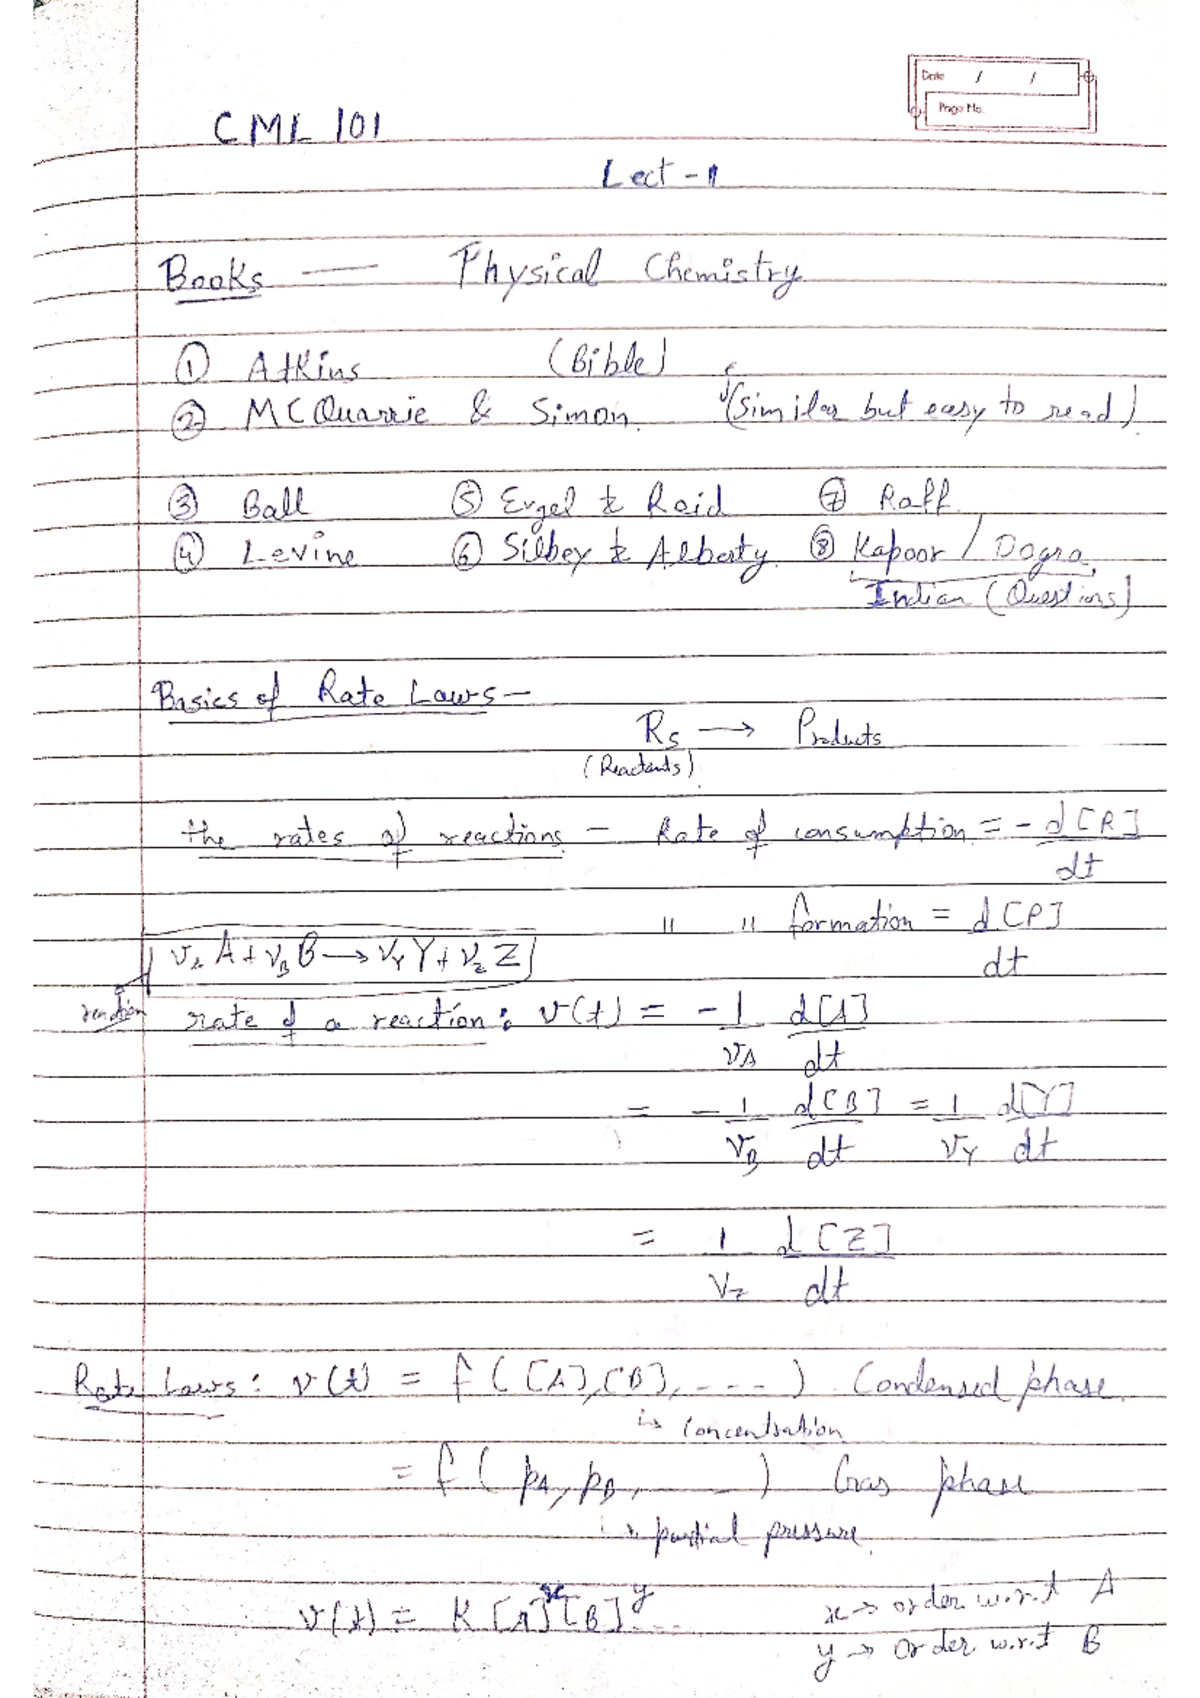 Date / /
Page No.
CML 101
Lect - 1
Books — Physical Chemistry
① Atkins (Bible)
② MCQuarrie & Simon (Similar but easy to read)
③ Ball ⑤ Engel & Reid ⑦ Raff
④ Levine ⑥ Silbey & Alberty ⑧ Kapoor / Dogra
Indian (Questions)
Basics of Rate Laws –
Rs → Products
(Reactants)
the rates of reactions – Rate of consumption = - d[R]/dt
" " formation = d[P]/dt
ν_A A + ν_B B → ν_Y Y + ν_Z Z
reaction
rate of a reaction : v(t) = - 1/ν_A d[A]/dt
= - 1/ν_B d[B]/dt = 1/ν_Y d[Y]/dt
= 1/ν_Z d[Z]/dt
Rate Laws : v(t) = f ([A], [B], ....) Condensed phase
↳ concentration
= f ( pA, pB, ....) Gas phase
↳ partial pressure
v(t) = K [A]^x [B]^y .... x → order w.r.t A
y → order w.r.t B